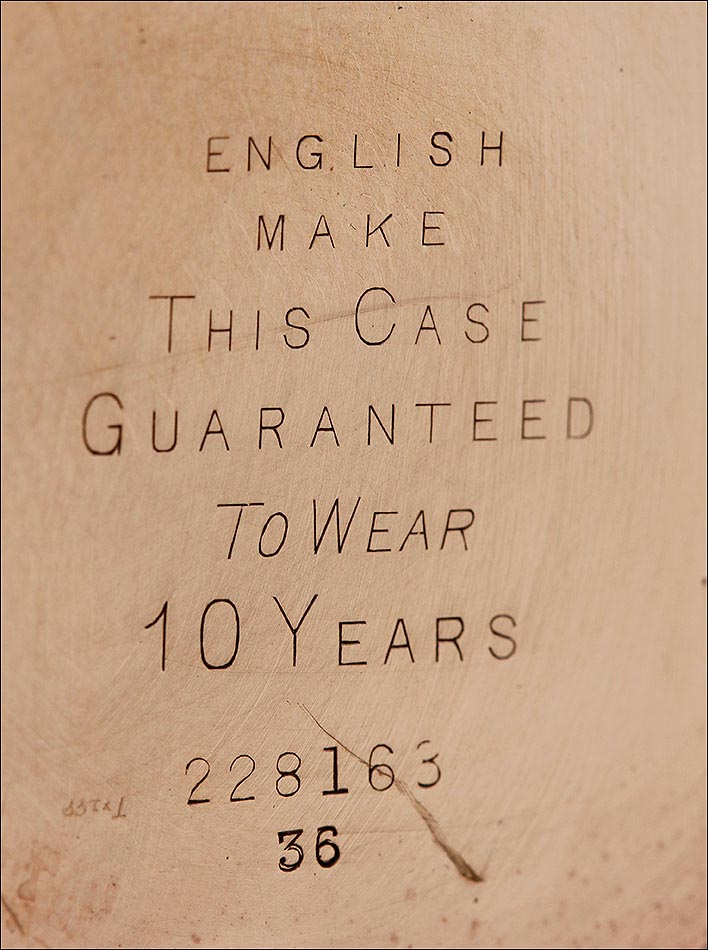 ENGLISH
MAKE
THIS CASE
GUARANTEED
TO WEAR
10 YEARS
228163
36